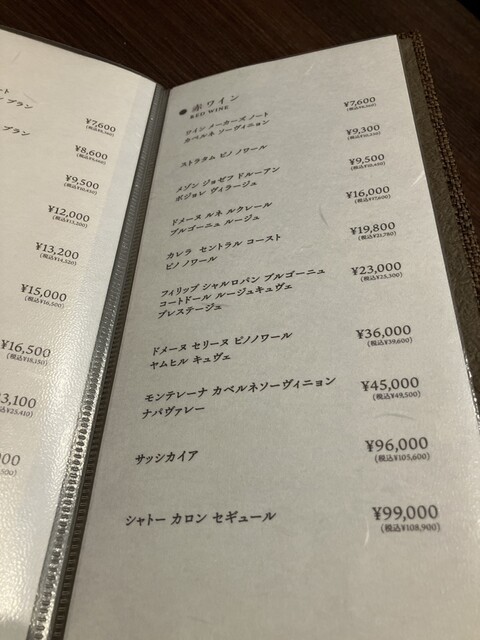 ブラン
¥7,600
ブラン
¥8,600
¥9,500
¥12,000
(税込¥13,200)
¥13,200
(税込¥14,520)
¥15,000
(税込¥16,500)
¥16,500
(税込¥18,150)
3,100
¥25,410)
000
500)
● 赤ワイン
RED WINE
ワイン メーカーズ ノート
カベルネ ソーヴィニョン
¥7,600
(税込¥8,360)
ストラタム ピノ ノワール
¥9,300
(税込¥10,230)
メゾン ジョゼフ ドルーアン
ボジョレ ヴィラージュ
¥9,500
(税込¥10,450)
ドメーヌ ルネ ルクレール
ブルゴーニュ ルージュ
¥16,000
(税込¥17,600)
カレラ セントラル コースト
ピノ ノワール
¥19,800
(税込¥21,780)
フィリップ シャルロパン ブルゴーニュ
コートドール ルージュキュヴェ
プレステージュ
¥23,000
(税込¥25,300)
ドメーヌ セリーヌ ピノノワール
ヤムヒル キュヴェ
¥36,000
(税込¥39,600)
モンテレーナ カベルネソーヴィニョン
ナパヴァレー
¥45,000
(税込¥49,500)
サッシカイア
¥96,000
(税込¥105,600)
シャトー カロン セギュール
¥99,000
(税込¥108,900)